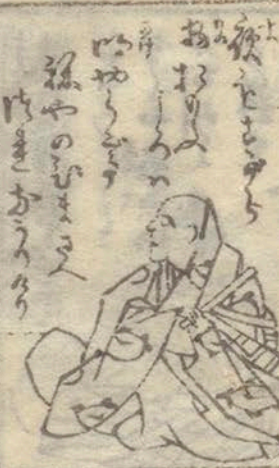 夜もすがら
物おもふ
ころハ
明やらで
ねやのひまさへ
つれなかりけり